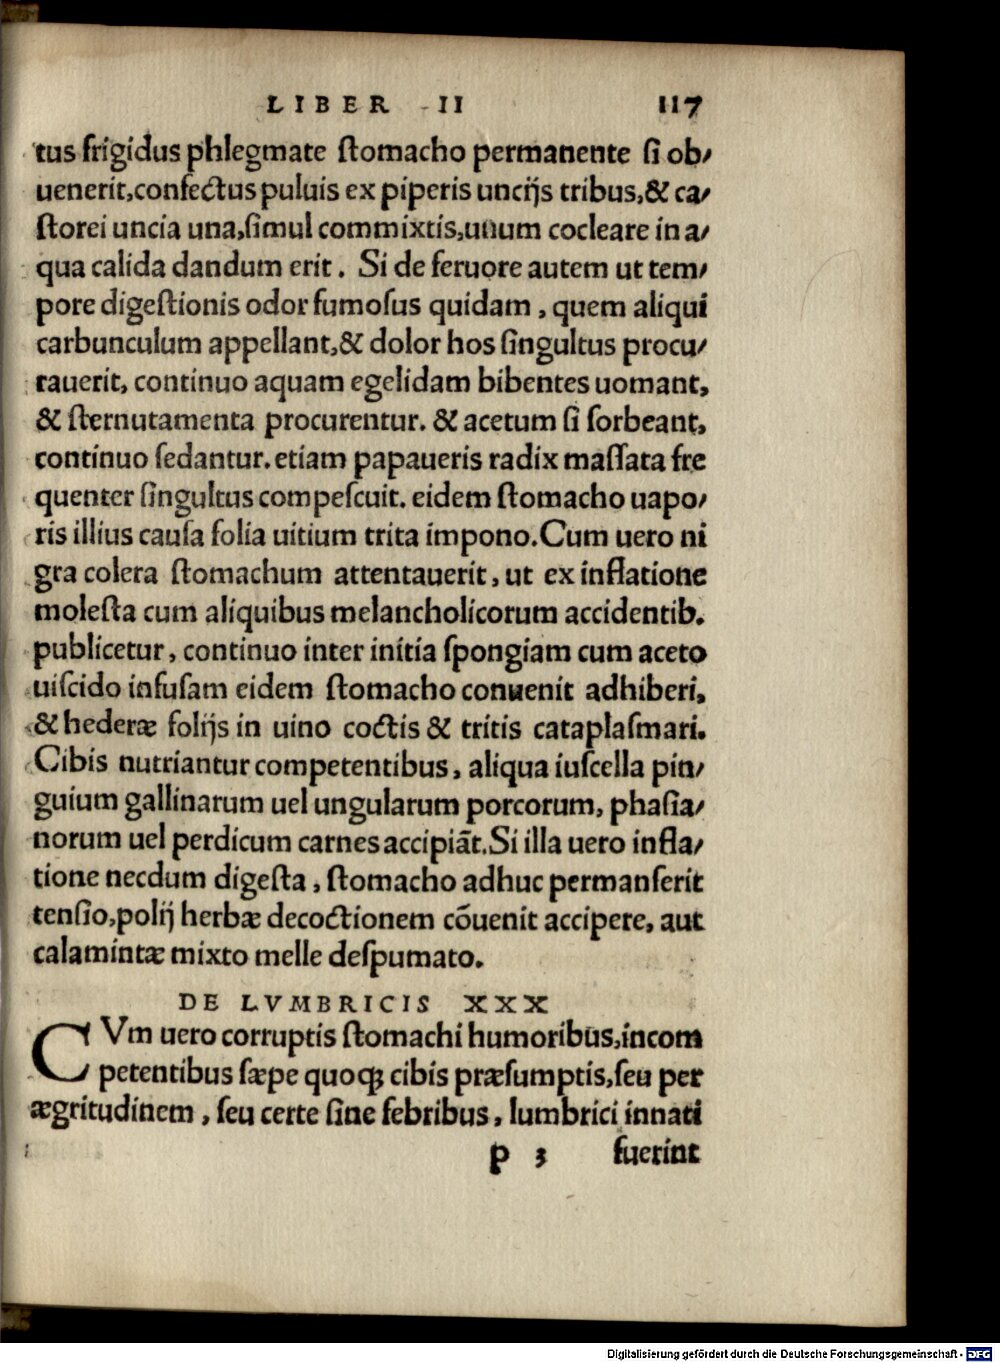 LIBER II 117
tus frigidus phlegmate ſtomacho permanente ſi ob⸗
uenerit,confectus puluis ex piperis uncijs tribus,& ca⸗
ſtorei uncia una,ſimul commixtis,unum cocleare in a⸗
qua calida dandum erit. Si de feruore autem ut tem⸗
pore digeſtionis odor fumoſus quidam, quem aliqui
carbunculum appellant,& dolor hos ſingultus procu⸗
rauerit, continuo aquam egelidam bibentes uomant,
& ſternutamenta procurentur. & acetum ſi ſorbeant,
continuo ſedantur. etiam papaueris radix maſſata fre
quenter ſingultus compeſcuit. eidem ſtomacho uapo⸗
ris illius cauſa folia uitium trita impono.Cum uero ni
gra colera ſtomachum attentauerit, ut ex inflatione
moleſta cum aliquibus melancholicorum accidentib.
publicetur, continuo inter initia ſpongiam cum aceto
uiſcido infuſam eidem ſtomacho conuenit adhiberi,
& hederæ folijs in uino coctis & tritis cataplaſmari.
Cibis nutriantur competentibus, aliqua iuſcella pin⸗
guium gallinarum uel ungularum porcorum, phaſia⸗
norum uel perdicum carnes accipiãt.Si illa uero infla⸗
tione necdum digeſta, ſtomacho adhuc permanſerit
tenſio,polij herbæ decoctionem cõuenit accipere, aut
calamintæ mixto melle deſpumato.
DE LVMBRICIS XXX
CVm uero corruptis ſtomachi humoribus,incom
petentibus ſæpe quoqꝫ cibis præſumptis,ſeu per
ægritudinem, ſeu certe ſine febribus, lumbrici innati
p 3 fuerint
Digitalisierung gefördert durch die Deutsche Forschungsgemeinschaft - DFG